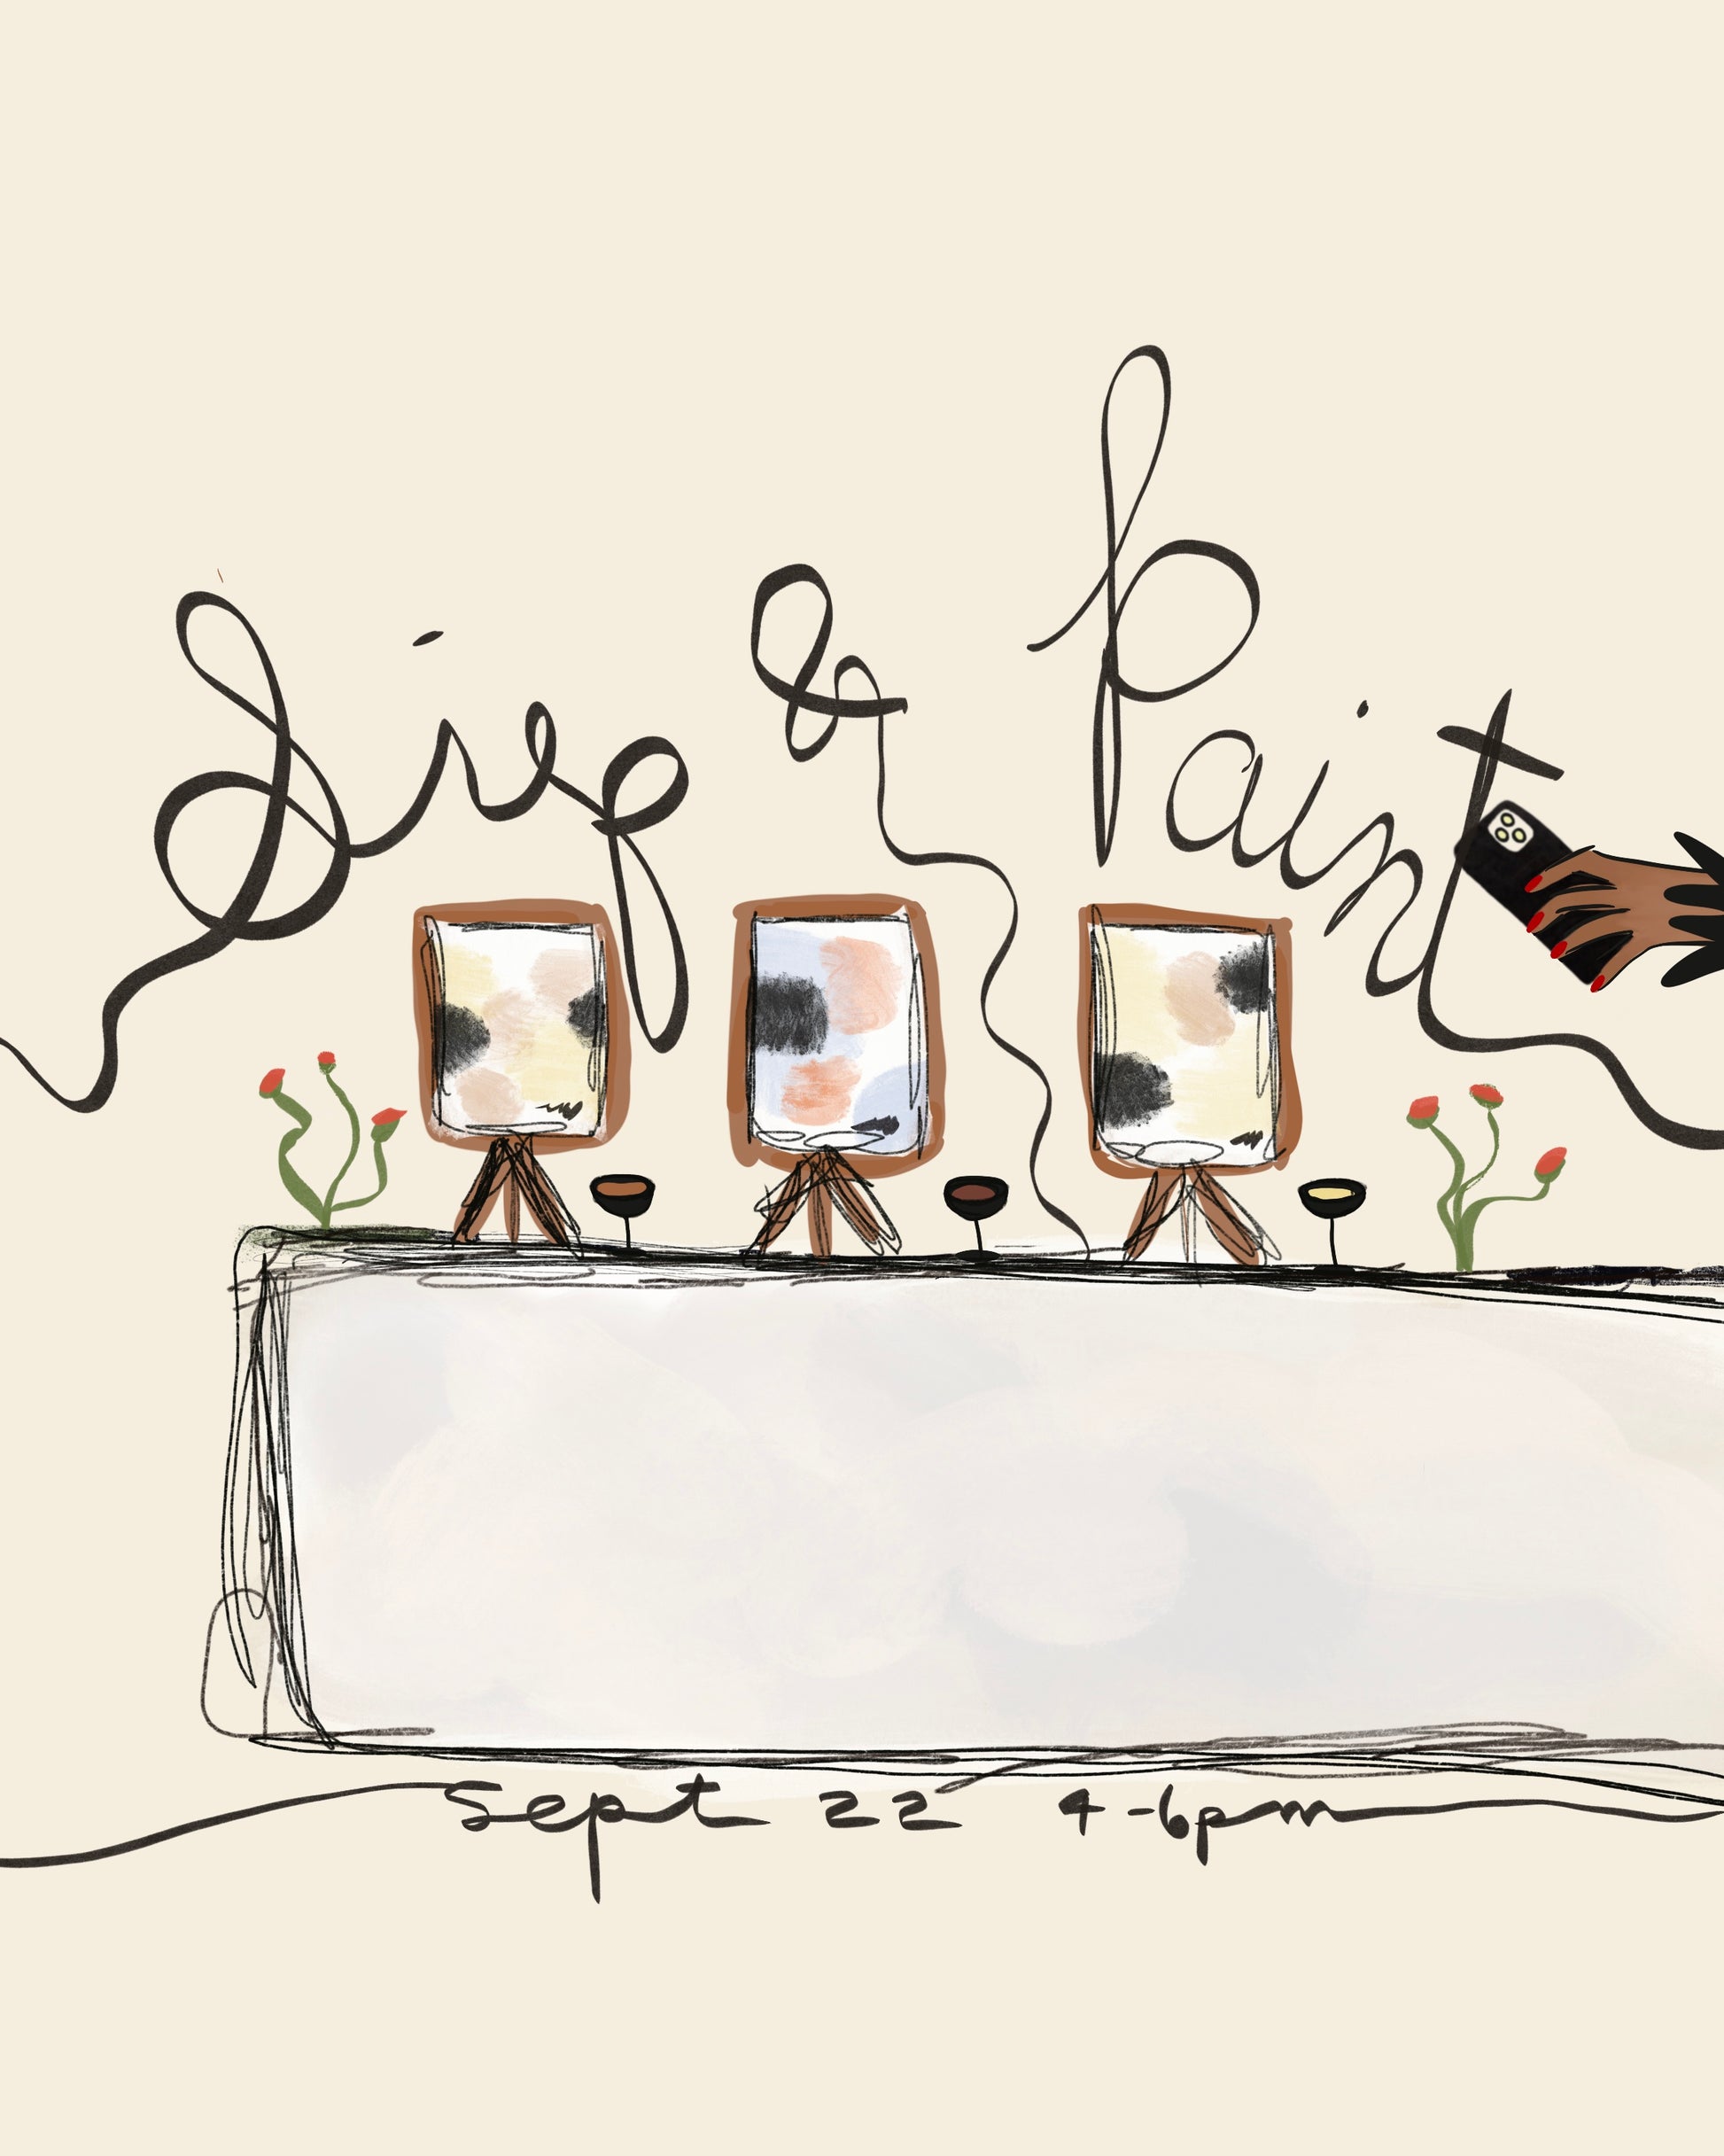 Sip & Paint
Sept 22 4-6pm